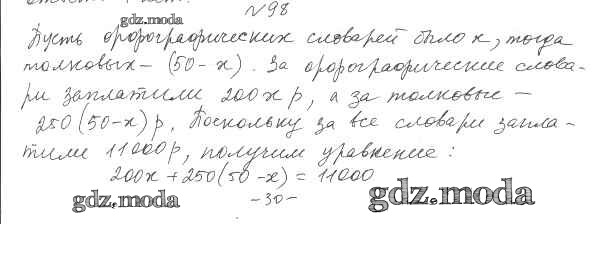 №98
gdz.moda
Пусть орфографических словарей было x, тогда
толковых - (50 - x). За орфографические слова-
ри заплатили 200x р, а за толковые -
250(50-x) р. Поскольку за все словари запла-
тили 11000 р, получим уравнение:
200x + 250(50-x) = 11000
gdz.moda -30- gdz.moda